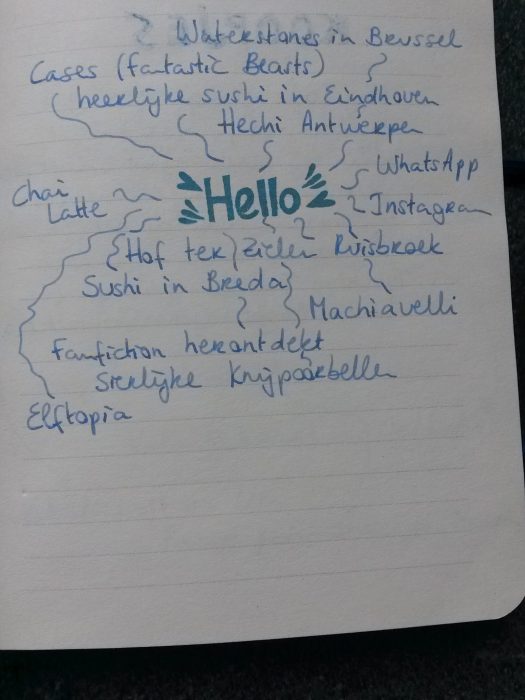 Waterstones in Brussel
Cases (fantastic Beasts)
heerlijke sushi in Eindhoven
Hechi Antwerpen
WhatsApp
Chai
Latte
Hello
Instagram
Hof ter Zielen Ruisbroek
Sushi in Breda
Machiavelli
Fanfiction herontdekt
sierlijke knijpoorbellen
Elftopia